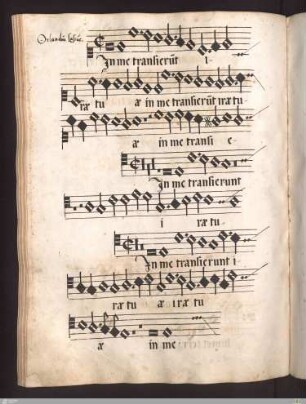 Orlandi Lassi.
In me transierũt i-
ræ tu æ in me transierũt iræ tu-
æ in me transi e
In me transierunt
i ræ tu-
In me transierunt i-
ræ tu æ i ræ tu
æ in me